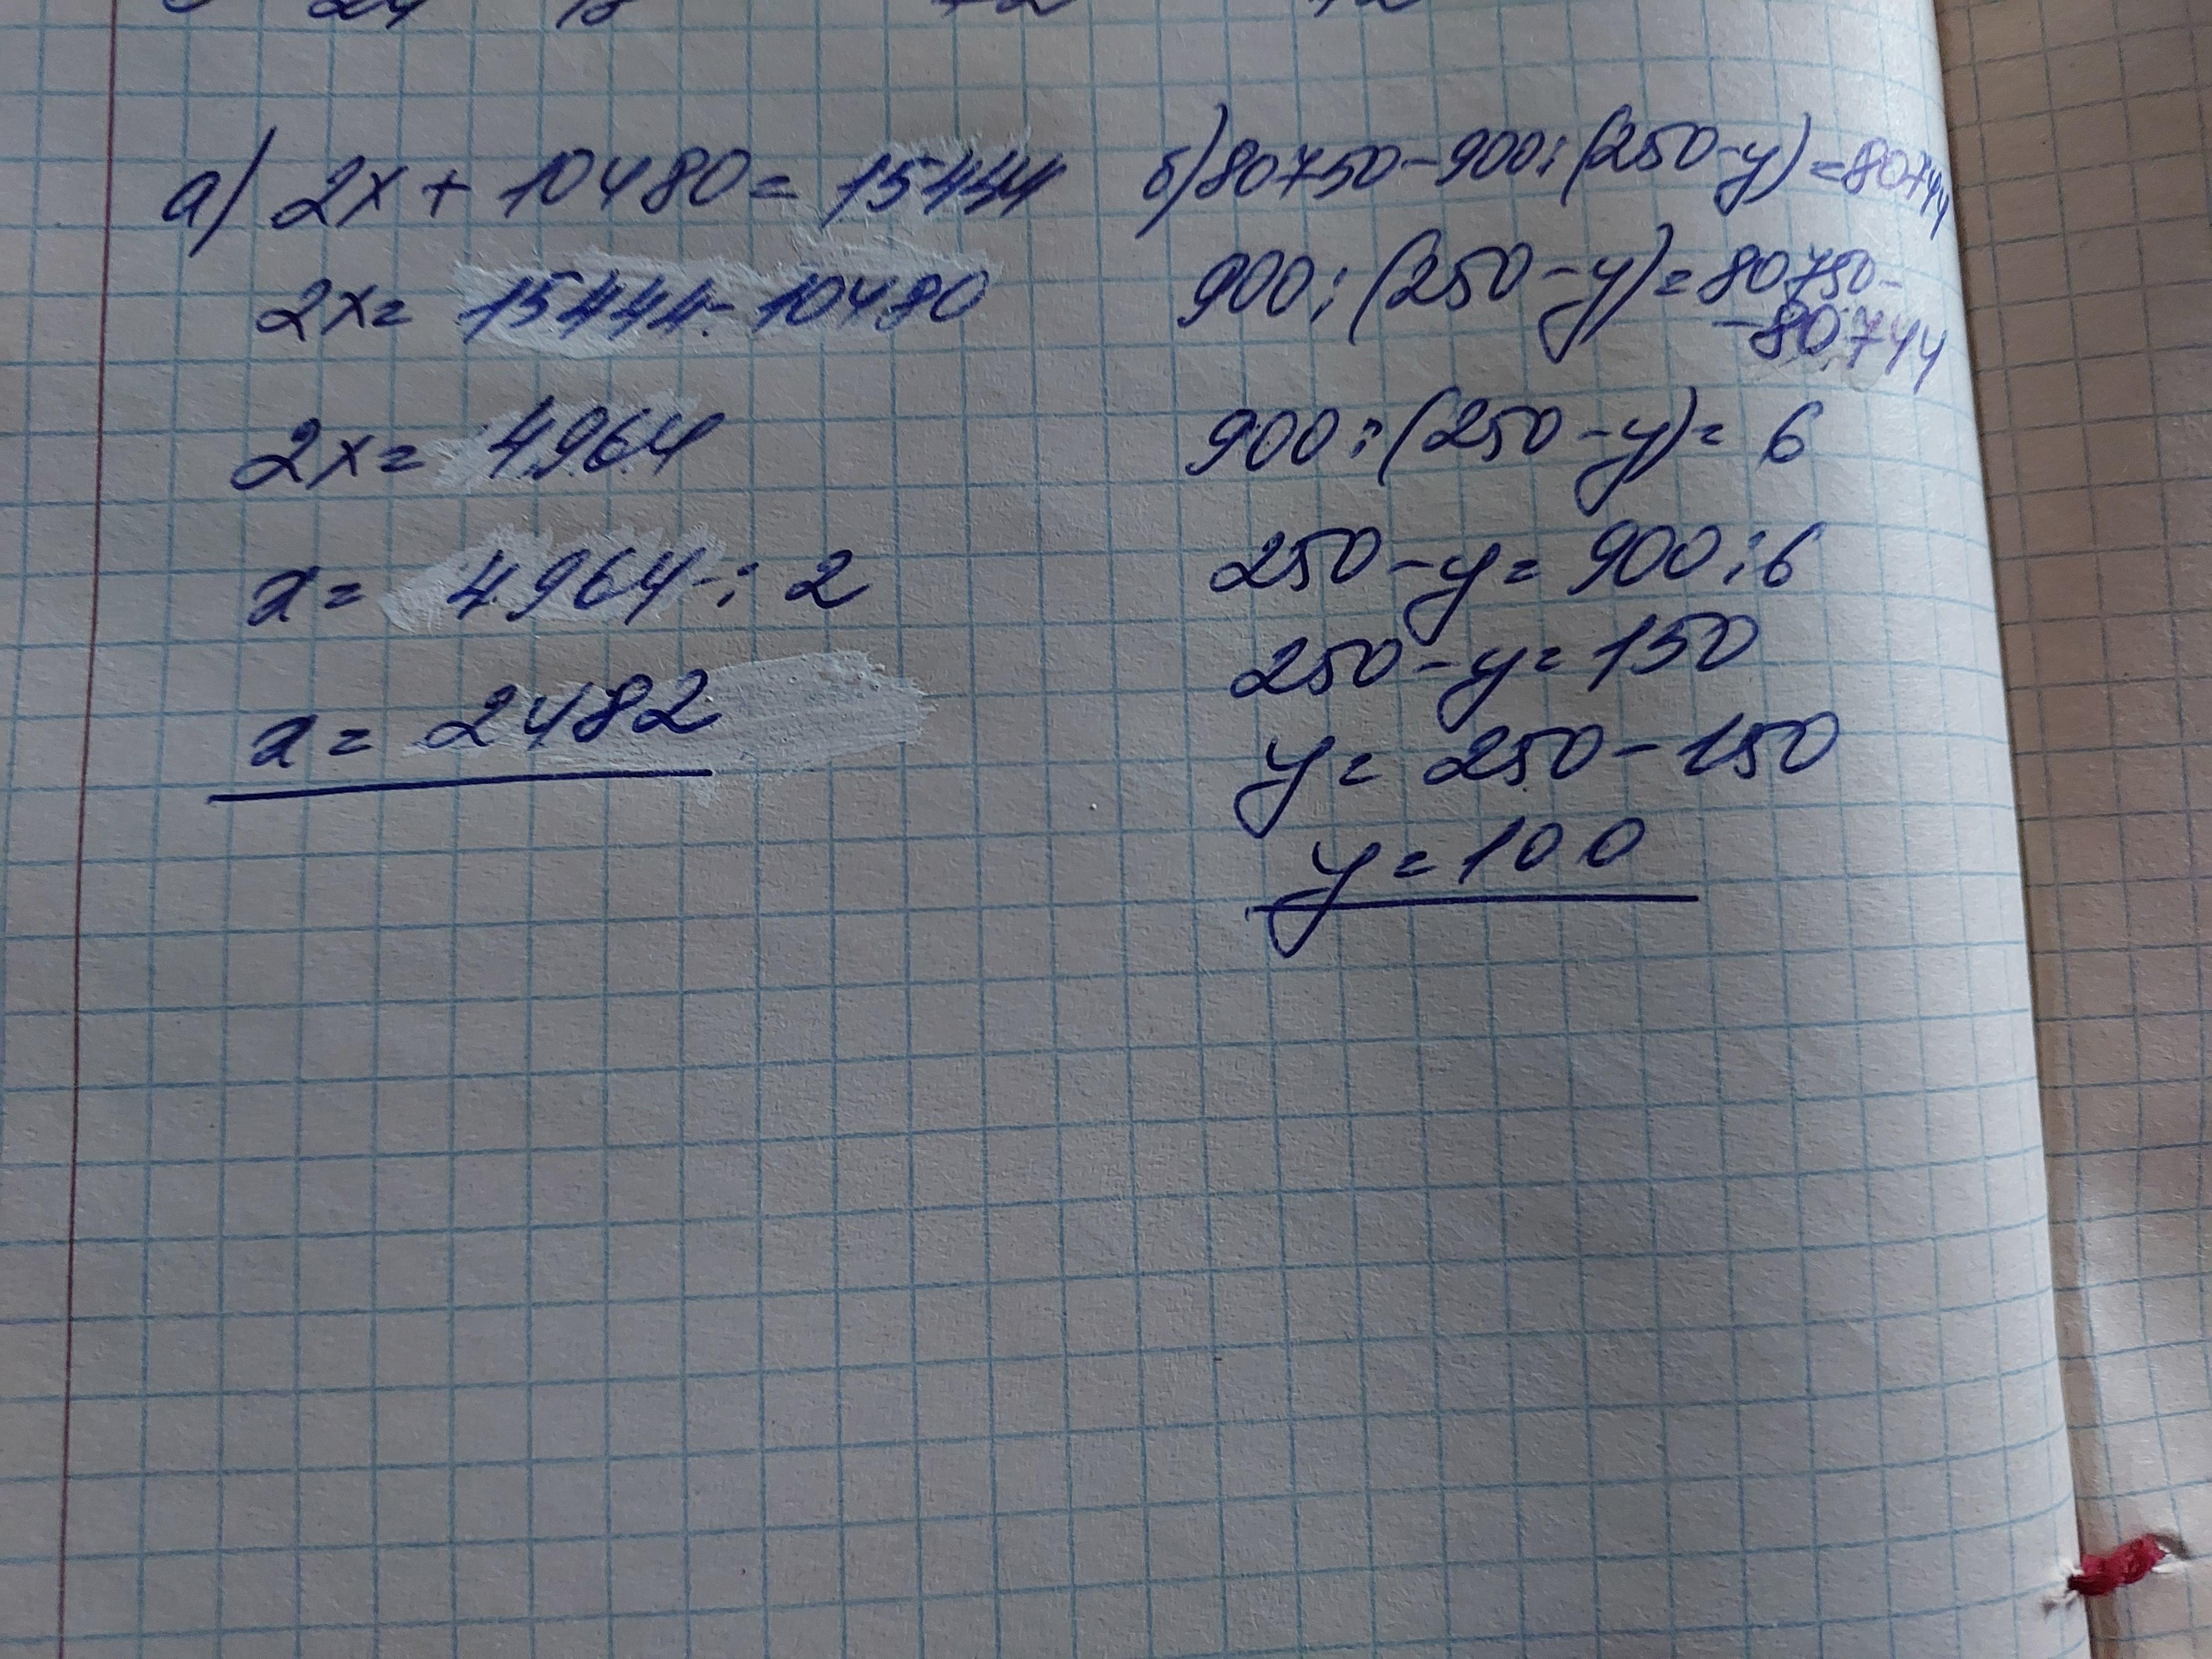 а) 2x + 10480 = 15444
2x = 15444 - 10480
2x = 4964
x = 4964 : 2
x = 2482
б) 80750 - 900 : (250 - y) = 80744
900 : (250 - y) = 80750 -
- 80744
900 : (250 - y) = 6
250 - y = 900 : 6
250 - y = 150
y = 250 - 150
y = 100